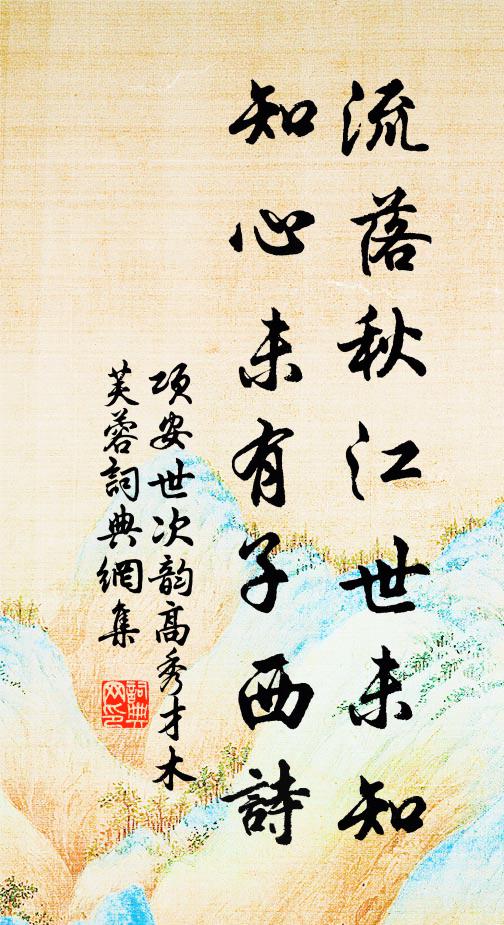 流落秋江世未知
知心未有子西詩
項安世次韵高秀才木
芙蓉詞典網集
詞典
网印